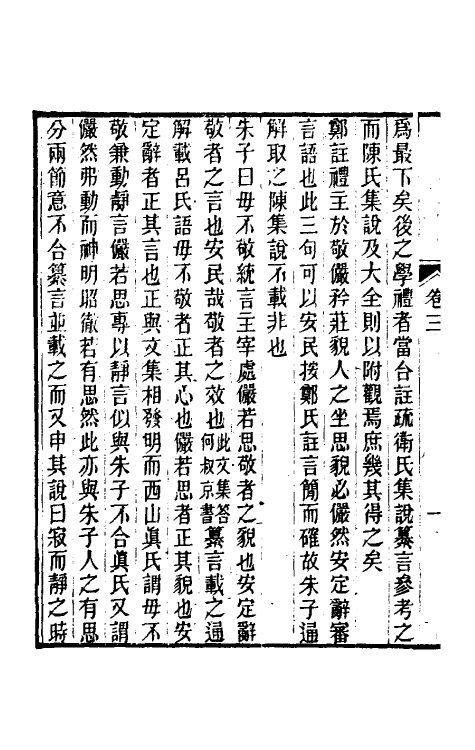 卷三
一
爲最下矣後之學禮者當合註疏衛氏集說纂言參考之
而陳氏集說及大全則以附觀焉庶幾其得之矣
鄭註禮主於敬儼矜莊貌人之坐思貌必儼然安定辭審
言語也此三句可以安民按鄭氏註言簡而確故朱子通
解取之陳集說不載非也
朱子曰毋不敬統言主宰處儼若思敬者之貌也安定辭
敬者之言也安民哉敬者之效也此文集答何叔京書纂言載之通
解載呂氏語毋不敬者正其心也儼若思者正其貌也安
定辭者正其言也正與文集相發明而西山眞氏謂毋不
敬兼動靜言儼若思專以靜言似與朱子不合眞氏又謂
儼然弗動而神明昭徹若有思然此亦與朱子人之有思
分兩節意不合纂言並載之而又申其說曰寂而靜之時